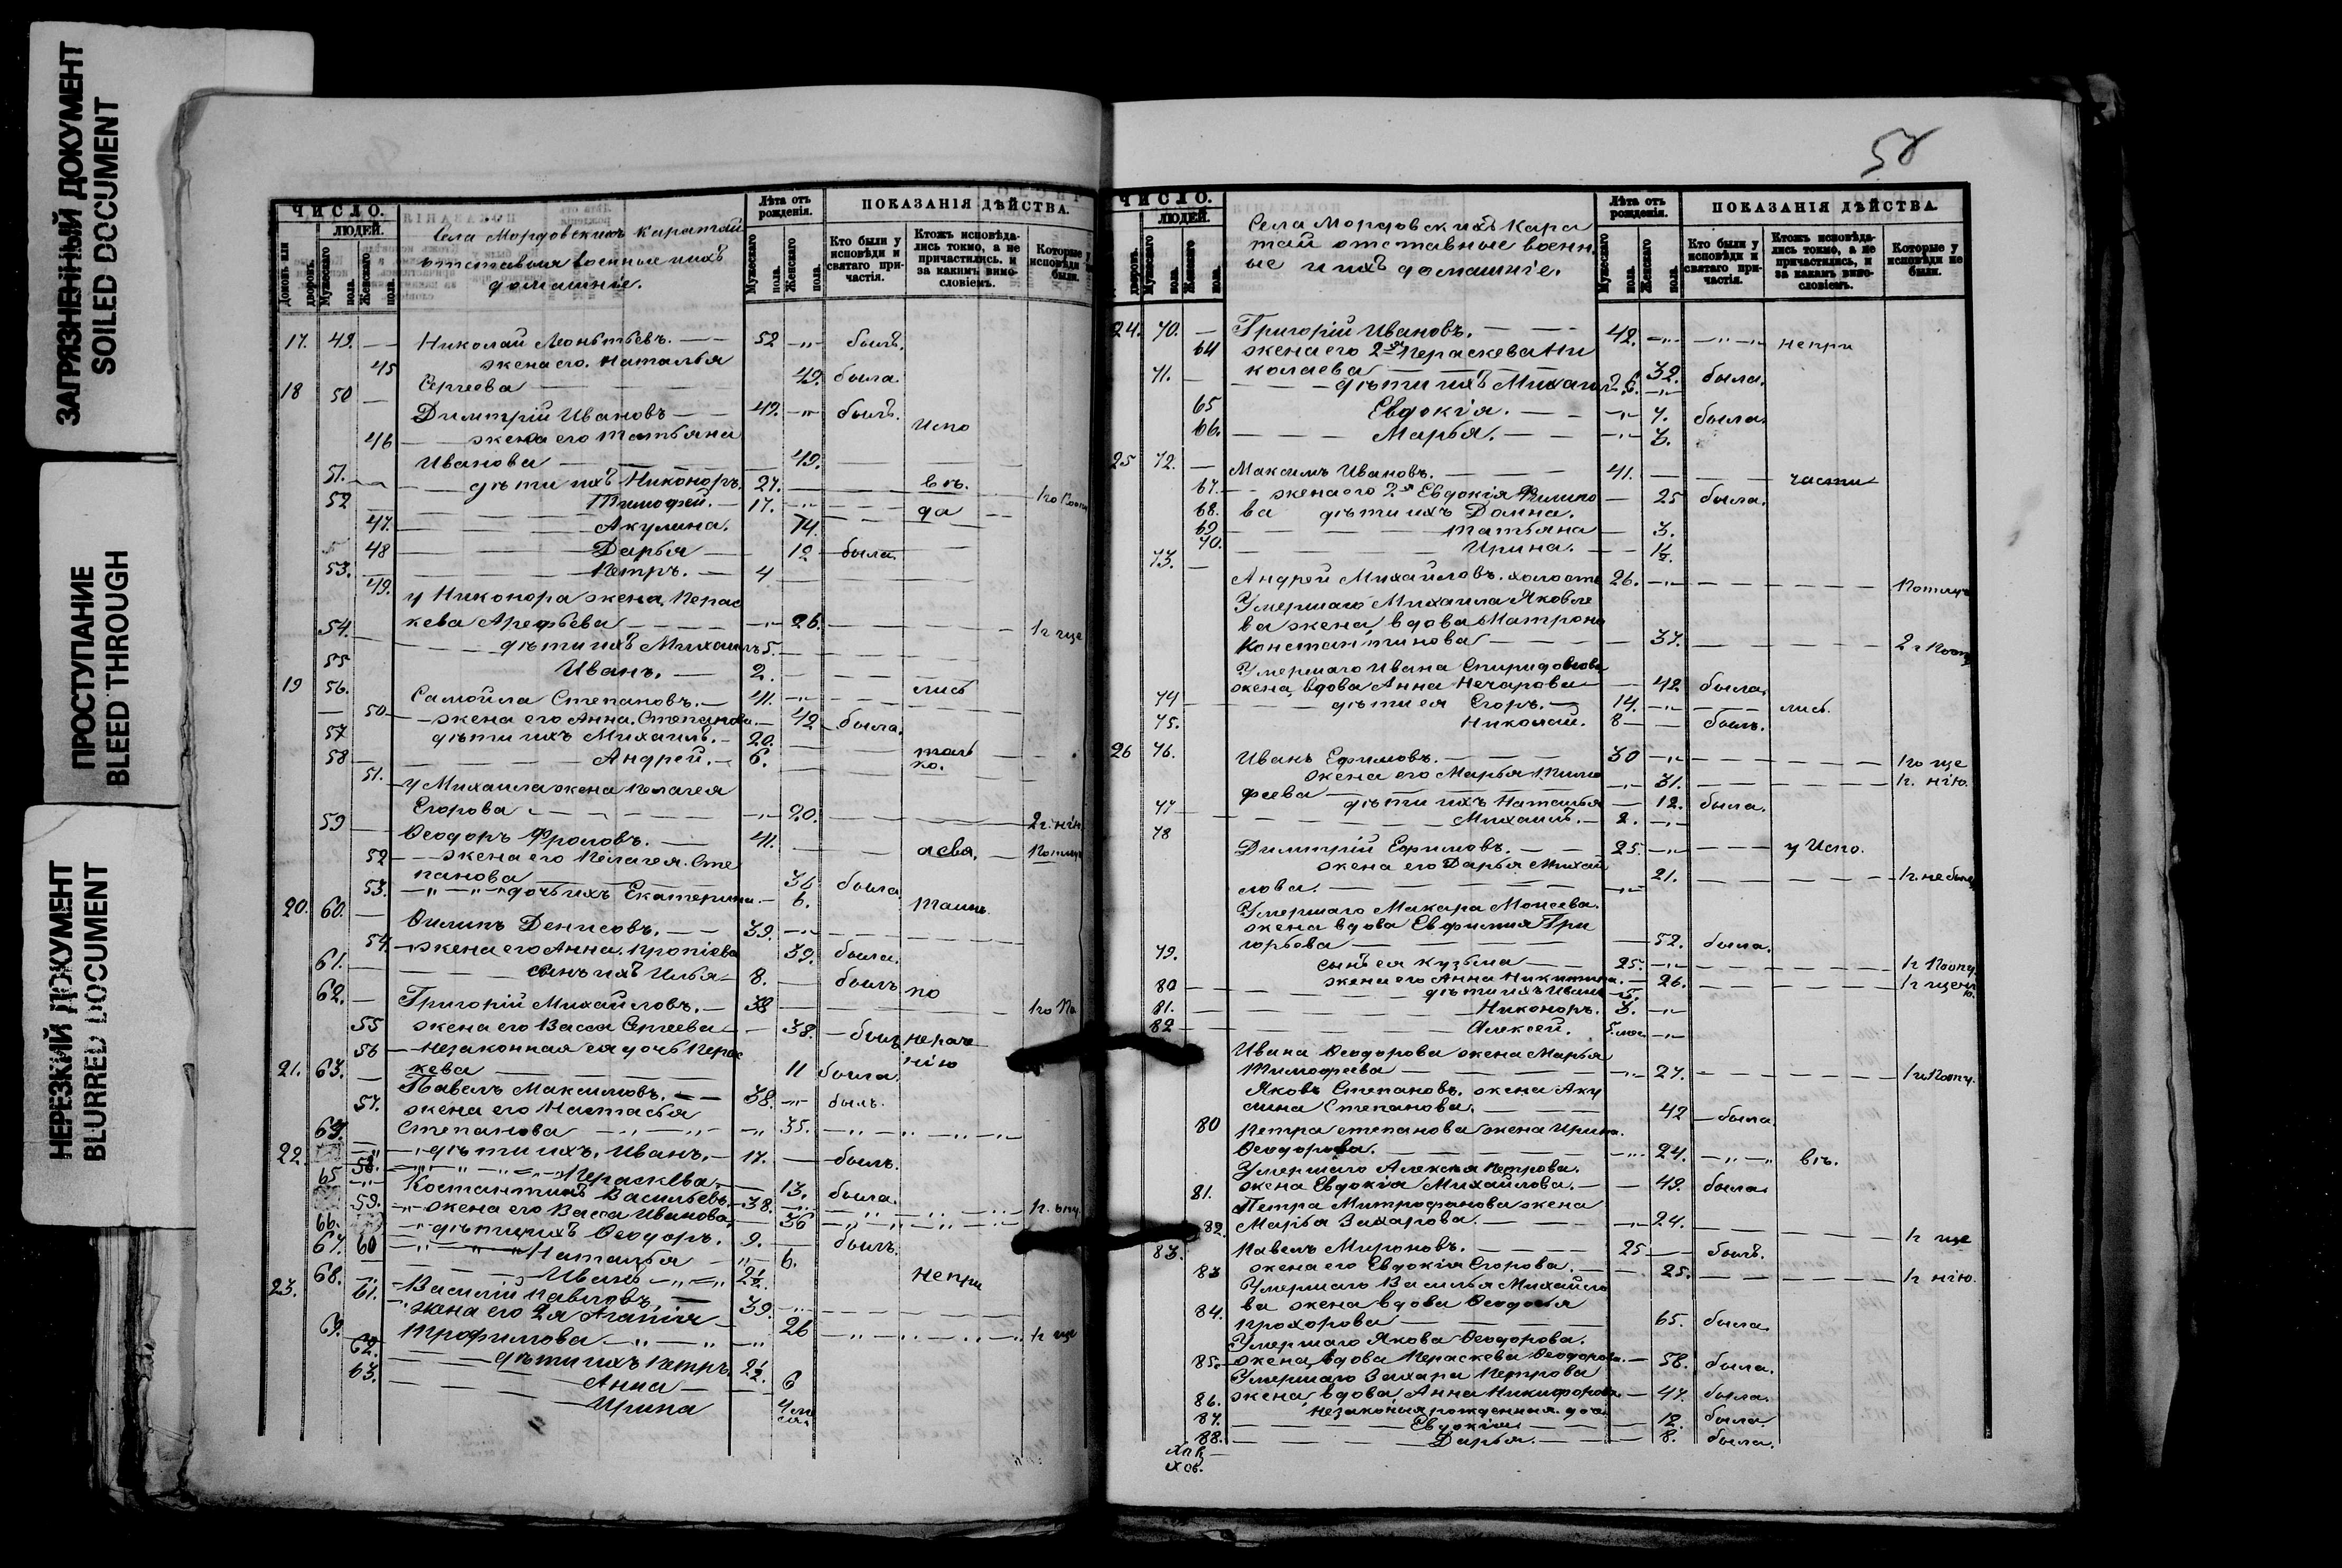 ЗАГРЯЗНЕННЫЙ ДОКУМЕНТ
SOILED DOCUMENT
ПРОСТУПАНИЕ
BLEED THROUGH
НЕРЕЗКИЙ ДОКУМЕНТ
BLURRED DOCUMENT
ЧИСЛО.
ЛЮДЕЙ.
Домовъ или дворовъ.
Мужескаго пола.
Женскаго пола.
Села Мордовскихъ Каратай
отставныя военные и ихъ
домашніе.
Лѣта отъ рожденія.
Мужескаго пола.
Женскаго пола.
ПОКАЗАНІЯ ДѢЙСТВА.
Кто были у исповѣди и святаго причастія.
Ктожъ исповѣдались токмо, а не причастились, и за какимъ винословіемъ.
Которые у исповѣди не были.
17. 49. Николай Леонтьевъ. 52 былъ.
45 жена его. Наталья
Сергеева 49. была.
18 50 Димитрій Ивановъ 49. былъ. Испо
46 жена его Татьяна
Иванова 49.
51. дѣти ихъ Никоноръ. 27. вѣ
52 Тимофей. 17. да
47. Акулина. 14.
48 Дарья 12 была.
53. Петръ. 4
49. у Никонора жена Перас
кева Арефьева 26.
54. дѣти ихъ Михаилъ 5.
55 Иванъ. 2.
19 56. Самойла Степановъ. 41. лись
50 жена его Анна. Степанова. 42 была.
57 дѣти ихъ Михаилъ. 20. толь
58 Андрей. 6. ко.
51. у Михаила жена Пелагея
Егорова 20.
59 Ѳеодоръ Фроловъ. 41.
52 жена его Пелагея. Сте
панова 36 была
53. дочь ихъ Екатерина 6.
20. 60. Филипъ Денисовъ. 39.
54. жена его Анна. 39. была.
61. сынъ ихъ Илья 8. былъ по
62. Григорій Михайловъ. 38
55 жена его Васса Сергеева 38. нераче
56 незаконная ея дочь Перас нію
кева 11 была.
21. 63. Павелъ Максимовъ. 38. былъ.
57. жена его Настасья
Степанова 35.
дѣти ихъ. Иванъ. 17. былъ.
22. 58. Пераскева. 13. была.
65 Костантинъ Васильевъ. 38.
59. жена его Васса Иванова 36
66. дѣти ихъ Ѳеодоръ. 9. былъ.
67. 60 Наталья 6.
68. Иванъ 2½ Непри
23. 61. Василій Павловъ 39.
жена его 2я Агапія 26
69. Трофимова
62. дѣти ихъ Петръ. 2½
63. Анна 6
Ирина
58
ЧИСЛО.
ЛЮДЕЙ.
дворовъ.
Мужескаго пола.
Женскаго пола.
Села Мордовскихъ Кара
тай отставные военн
ые и ихъ домашніе.
Лѣта отъ рожденія.
Мужескаго пола.
Женскаго пола.
ПОКАЗАНІЯ ДѢЙСТВА.
Кто были у исповѣди и святаго причастія.
Ктожъ исповѣдались токмо, а не причастились, и за какимъ винословіемъ.
Которые у исповѣди не были.
24. 70. Григорій Ивановъ. 42. непри
64 жена его 2я Пераскева Ни
колаева 32. была.
71. дѣти ихъ Михаилъ
65 Евдокія. 7. была.
66. Марья. 3.
25 72. Максимъ Ивановъ. 41. части
67. жена его 2я Евдокія Филипо 25 была.
68. ва дѣти ихъ Домна.
69 Татьяна 3.
70. Ирина.
73. Андрей Михайловъ. холостъ 26.
Умершаго Михаила Яковле
ва жена, вдова Матрона
Константинова 37.
Умершаго Ивана Спиридонова
жена, вдова Анна Нечарова 42 была.
74 дѣти ея Егоръ. 14. лись.
75. Николай. 8 былъ.
26 76. Иванъ Ефимовъ. 30
жена его Марья Тимо 31. нію.
феева
77 дѣти ихъ Наталья 12. была.
Михаилъ. 2.
78 Димитрій Ефимовъ. 25. у Испо.
жена его Дарья Михай 21.
лова.
Умершаго Макара Моисеева.
жена вдова Евфимия Гри
горьева 52. была.
79. сынъ ея Кузьма 25.
жена его Анна Никитина. 26.
80 дѣти ихъ Иванъ
81. Никоноръ. 3.
82 Алексей.
Ивана Ѳеодорова жена Марья
Тимофеева 27.
Яковъ Степановъ. жена Аку
лина Степанова. 42 была.
80 Петра степанова жена Ирина.
Ѳеодорова. 24. вѣ.
Умершаго Алексѣя Петрова.
81. жена Евдокія Михайлова. 49. была.
Петра Митрофанова жена
82. Марья Захарова. 24.
83. Павелъ Мироновъ. 25 былъ.
83 жена его Евдокія Егорова. 25. нію.
Умершаго Василья Михайло
84. ва жена вдова Ѳеодосья
Прохорова 65. была.
Умершаго Якова Ѳеодорова.
85. жена, вдова Пераскева Ѳеодорова. 58. была.
Умершаго Захара Петрова
86. жена, вдова Анна Никифорова 47. была.
87. Евдокія 12. была
88. Дарья. 8. была.